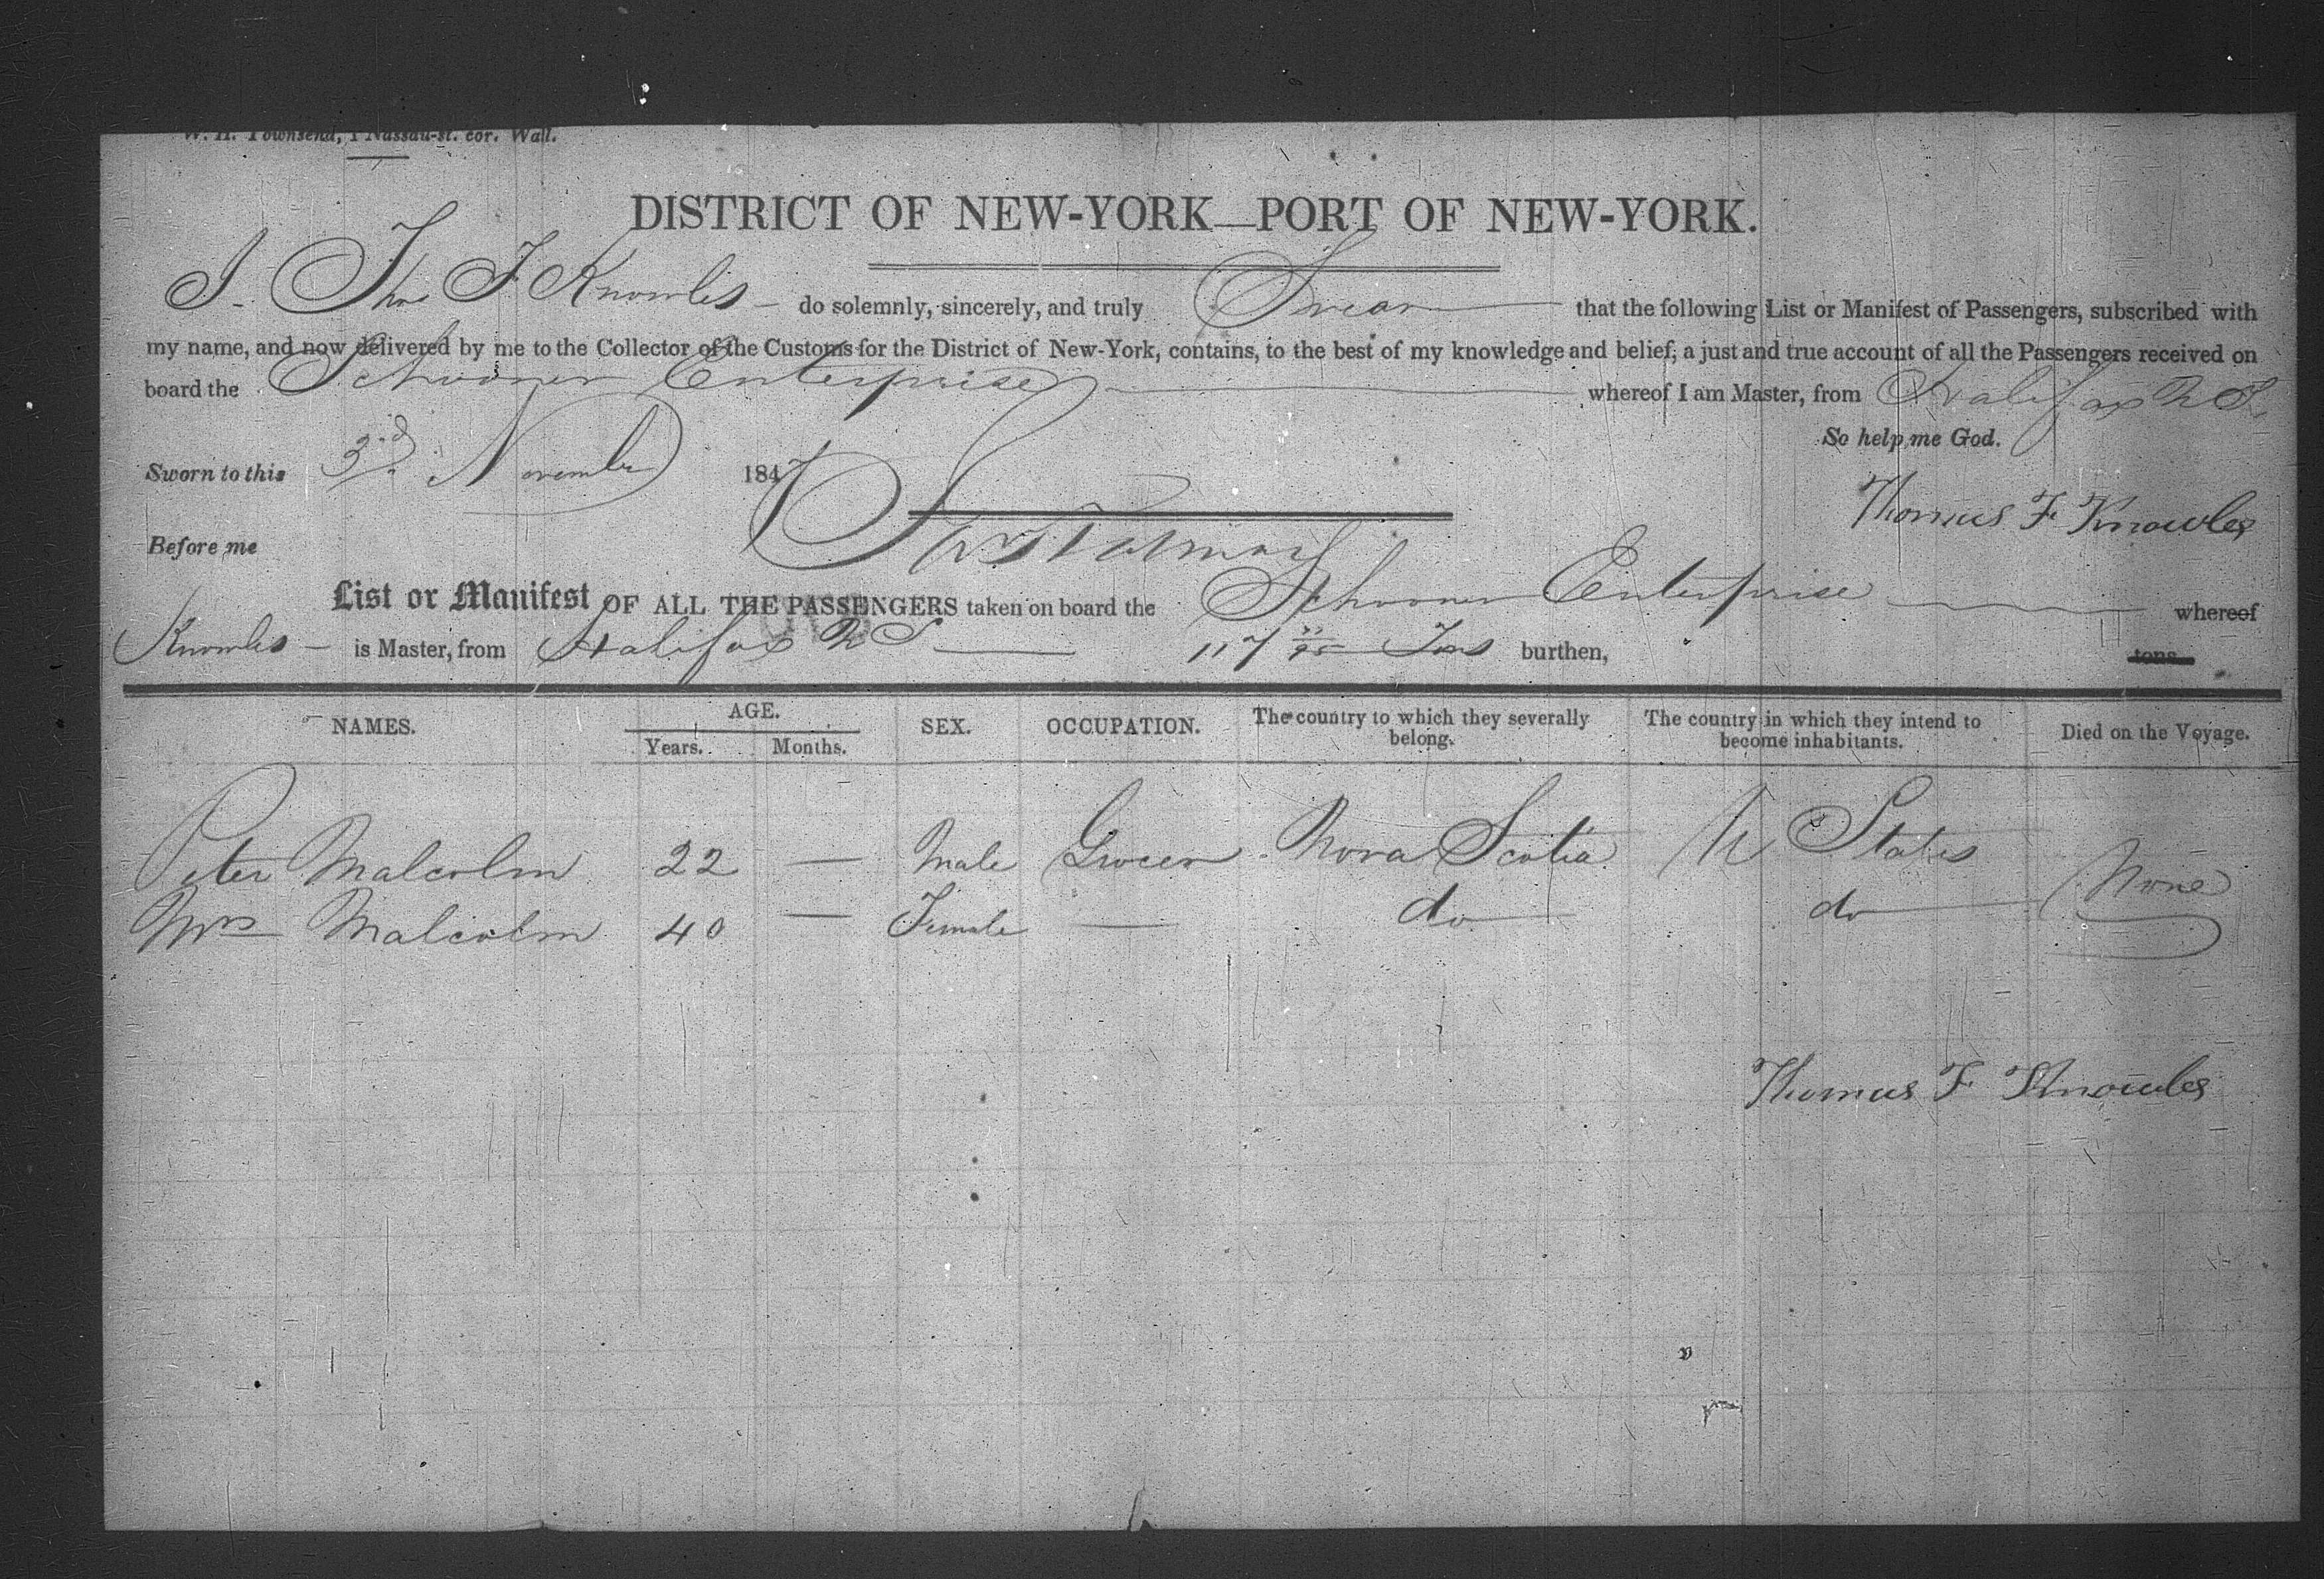 W. H. Townsend, 1 Nassau-st. cor. Wall.
DISTRICT OF NEW-YORK—PORT OF NEW-YORK.
I Tho F Knowles do solemnly, sincerely, and truly Swear that the following List or Manifest of Passengers, subscribed with
my name, and now delivered by me to the Collector of the Customs for the District of New-York, contains, to the best of my knowledge and belief, a just and true account of all the Passengers received on
board the Schooner Enterprise whereof I am Master, from Halifax N S
So help me God.
Sworn to this 3d November 1847
Thomas F Knowles
Before me
List or Manifest OF ALL THE PASSENGERS taken on board the Schooner Enterprise whereof
Knowles is Master, from Halifax N S 117 Tons burthen, tons
NAMES. AGE. SEX. OCCUPATION. The country to which they severally belong. The country in which they intend to become inhabitants. Died on the Voyage.
Years. Months.
Peter Malcolm 22 — Male Grocer Nova Scotia U States None
Mrs Malcolm 40 — Female — do do
Thomas F Knowles